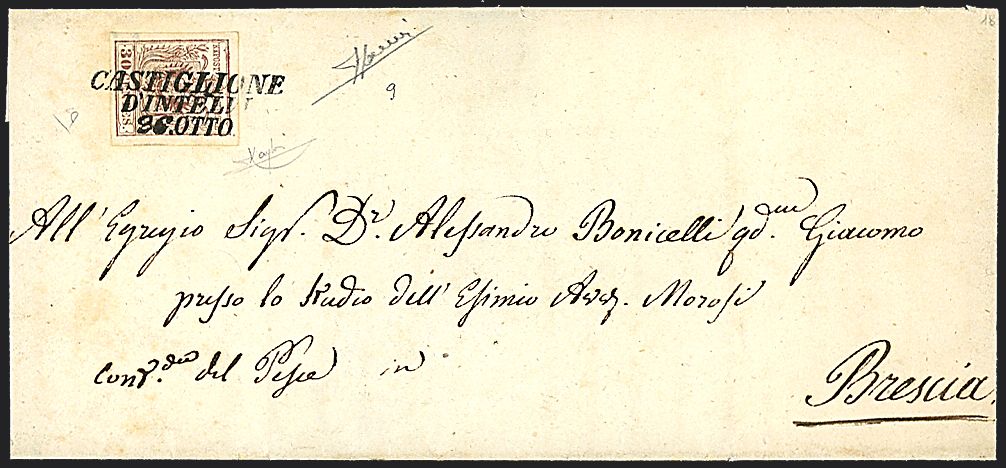 18
30 CES.
CASTIGLIONE
D'INTELVI
26.OTTO.
9
All' Egregio Sigr. Dr. Alessandro Bonicelli qdm. Giacomo
presso lo Studio dell' Esimio Avv. Morosi
Contr.da del Pesce in
Brescia.